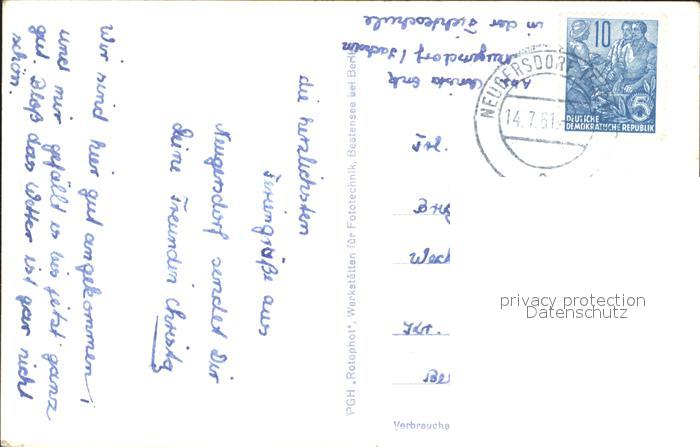 die herzlichsten
Feriengrüße aus
Neugersdorf sendet Dir
Deine Freundin Christa
Wir sind hier gut angekommen
und mir gefällt es bis jetzt ganz
gut. Bloß das Wetter ist gar nicht
schön.
PGH „Rotophot“, Werkstätten für Fototechnik, Bestensee bei Berlin
Abs. Christa
Neugersdorf / Sachsen
in der Fichteschule
10
5
DEUTSCHE
DEMOKRATISCHE REPUBLIK
NEUGERSDORF
14.7.61
Frl.
Kr.
Be
Verbrauche
privacy protection
Datenschutz